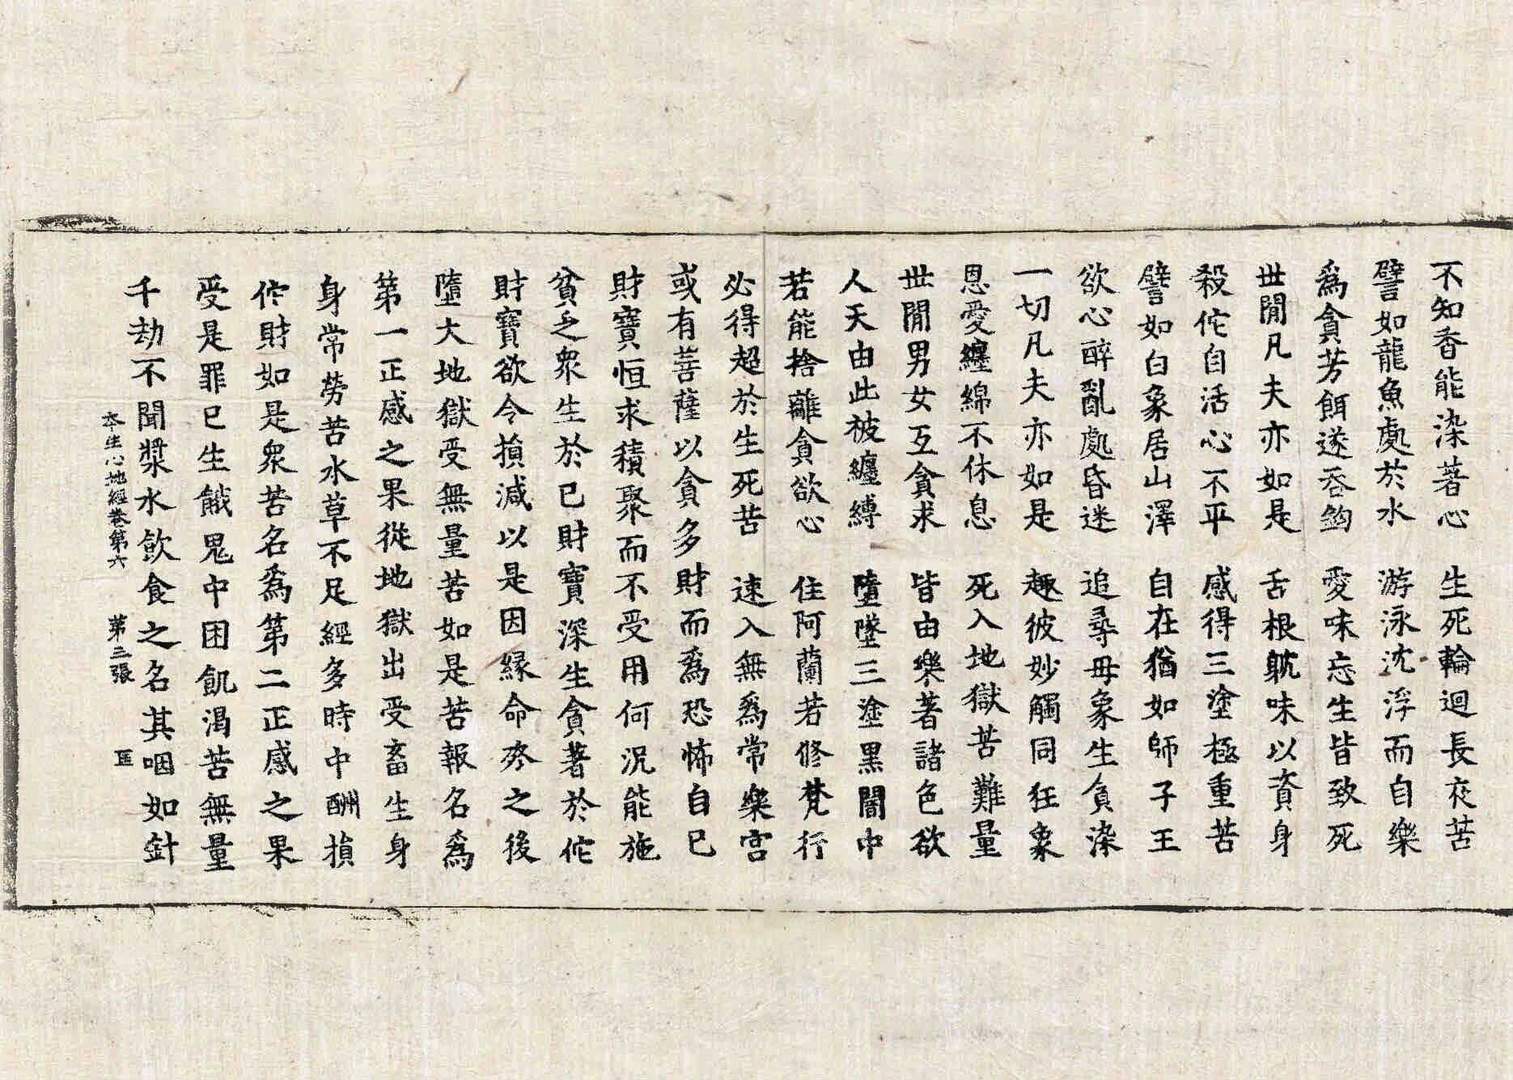 不知香能染著心　生死輪迴長夜苦
譬如龍魚處於水　游泳沈浮而自樂
爲貪芳餌遂吞鉤　愛味忘生皆致死
世閒凡夫亦如是　舌根躭味以資身
殺佗自活心不平　感得三塗極重苦
譬如白象居山澤　自在猶如師子王
欲心醉亂處昏迷　追尋母象生貪染
一切凡夫亦如是　趣彼妙觸同狂象
恩愛纏綿不休息　死入地獄苦難量
世閒男女互貪求　皆由樂著諸色欲
人天由此被纏縛　墮墜三塗黑闇中
若能捨離貪欲心　住阿蘭若修梵行
必得超於生死苦　速入無爲常樂宮
或有菩薩以貪多財而爲恐怖自己
財寶恒求積聚而不受用何況能施
貧乏衆生於己財寶深生貪著於佗
財寶欲令損減以是因緣命終之後
墮大地獄受無量苦如是苦報名爲
第一正感之果從地獄出受畜生身
身常勞苦水草不足經多時中酬損
佗財如是衆苦名爲第二正感之果
受是罪已生餓鬼中困飢渴苦無量
千劫不聞漿水飲食之名其咽如針
本生心地經卷第六　第三張